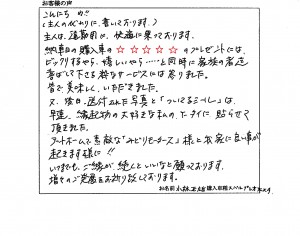 お客様の声
こんにちわ!!
(主人の代わりに、書いております。)
主人は、通勤用に、快適に乗っております。
納車日の購入車の☆☆☆☆☆のプレゼントには、
ビックリするやら、嬉しいやら……と同時に家族の者迄
喜ばして下さる粋なサービスには参りました。
皆で美味しく、いただきました。
又、後日、送付された写真と「ついてるシール」は、
早速、縁起物の大好きな私の、ケータイに貼らせて
頂きました。
アットホームで素敵な「みどりモータース」様と我家に良い事が
起きます様に!!
いつまでも、ご縁が続くといいなと願っております。
増々のご発展をお祈り致しております。
お名前 小林
購入車種 スバル プレオ